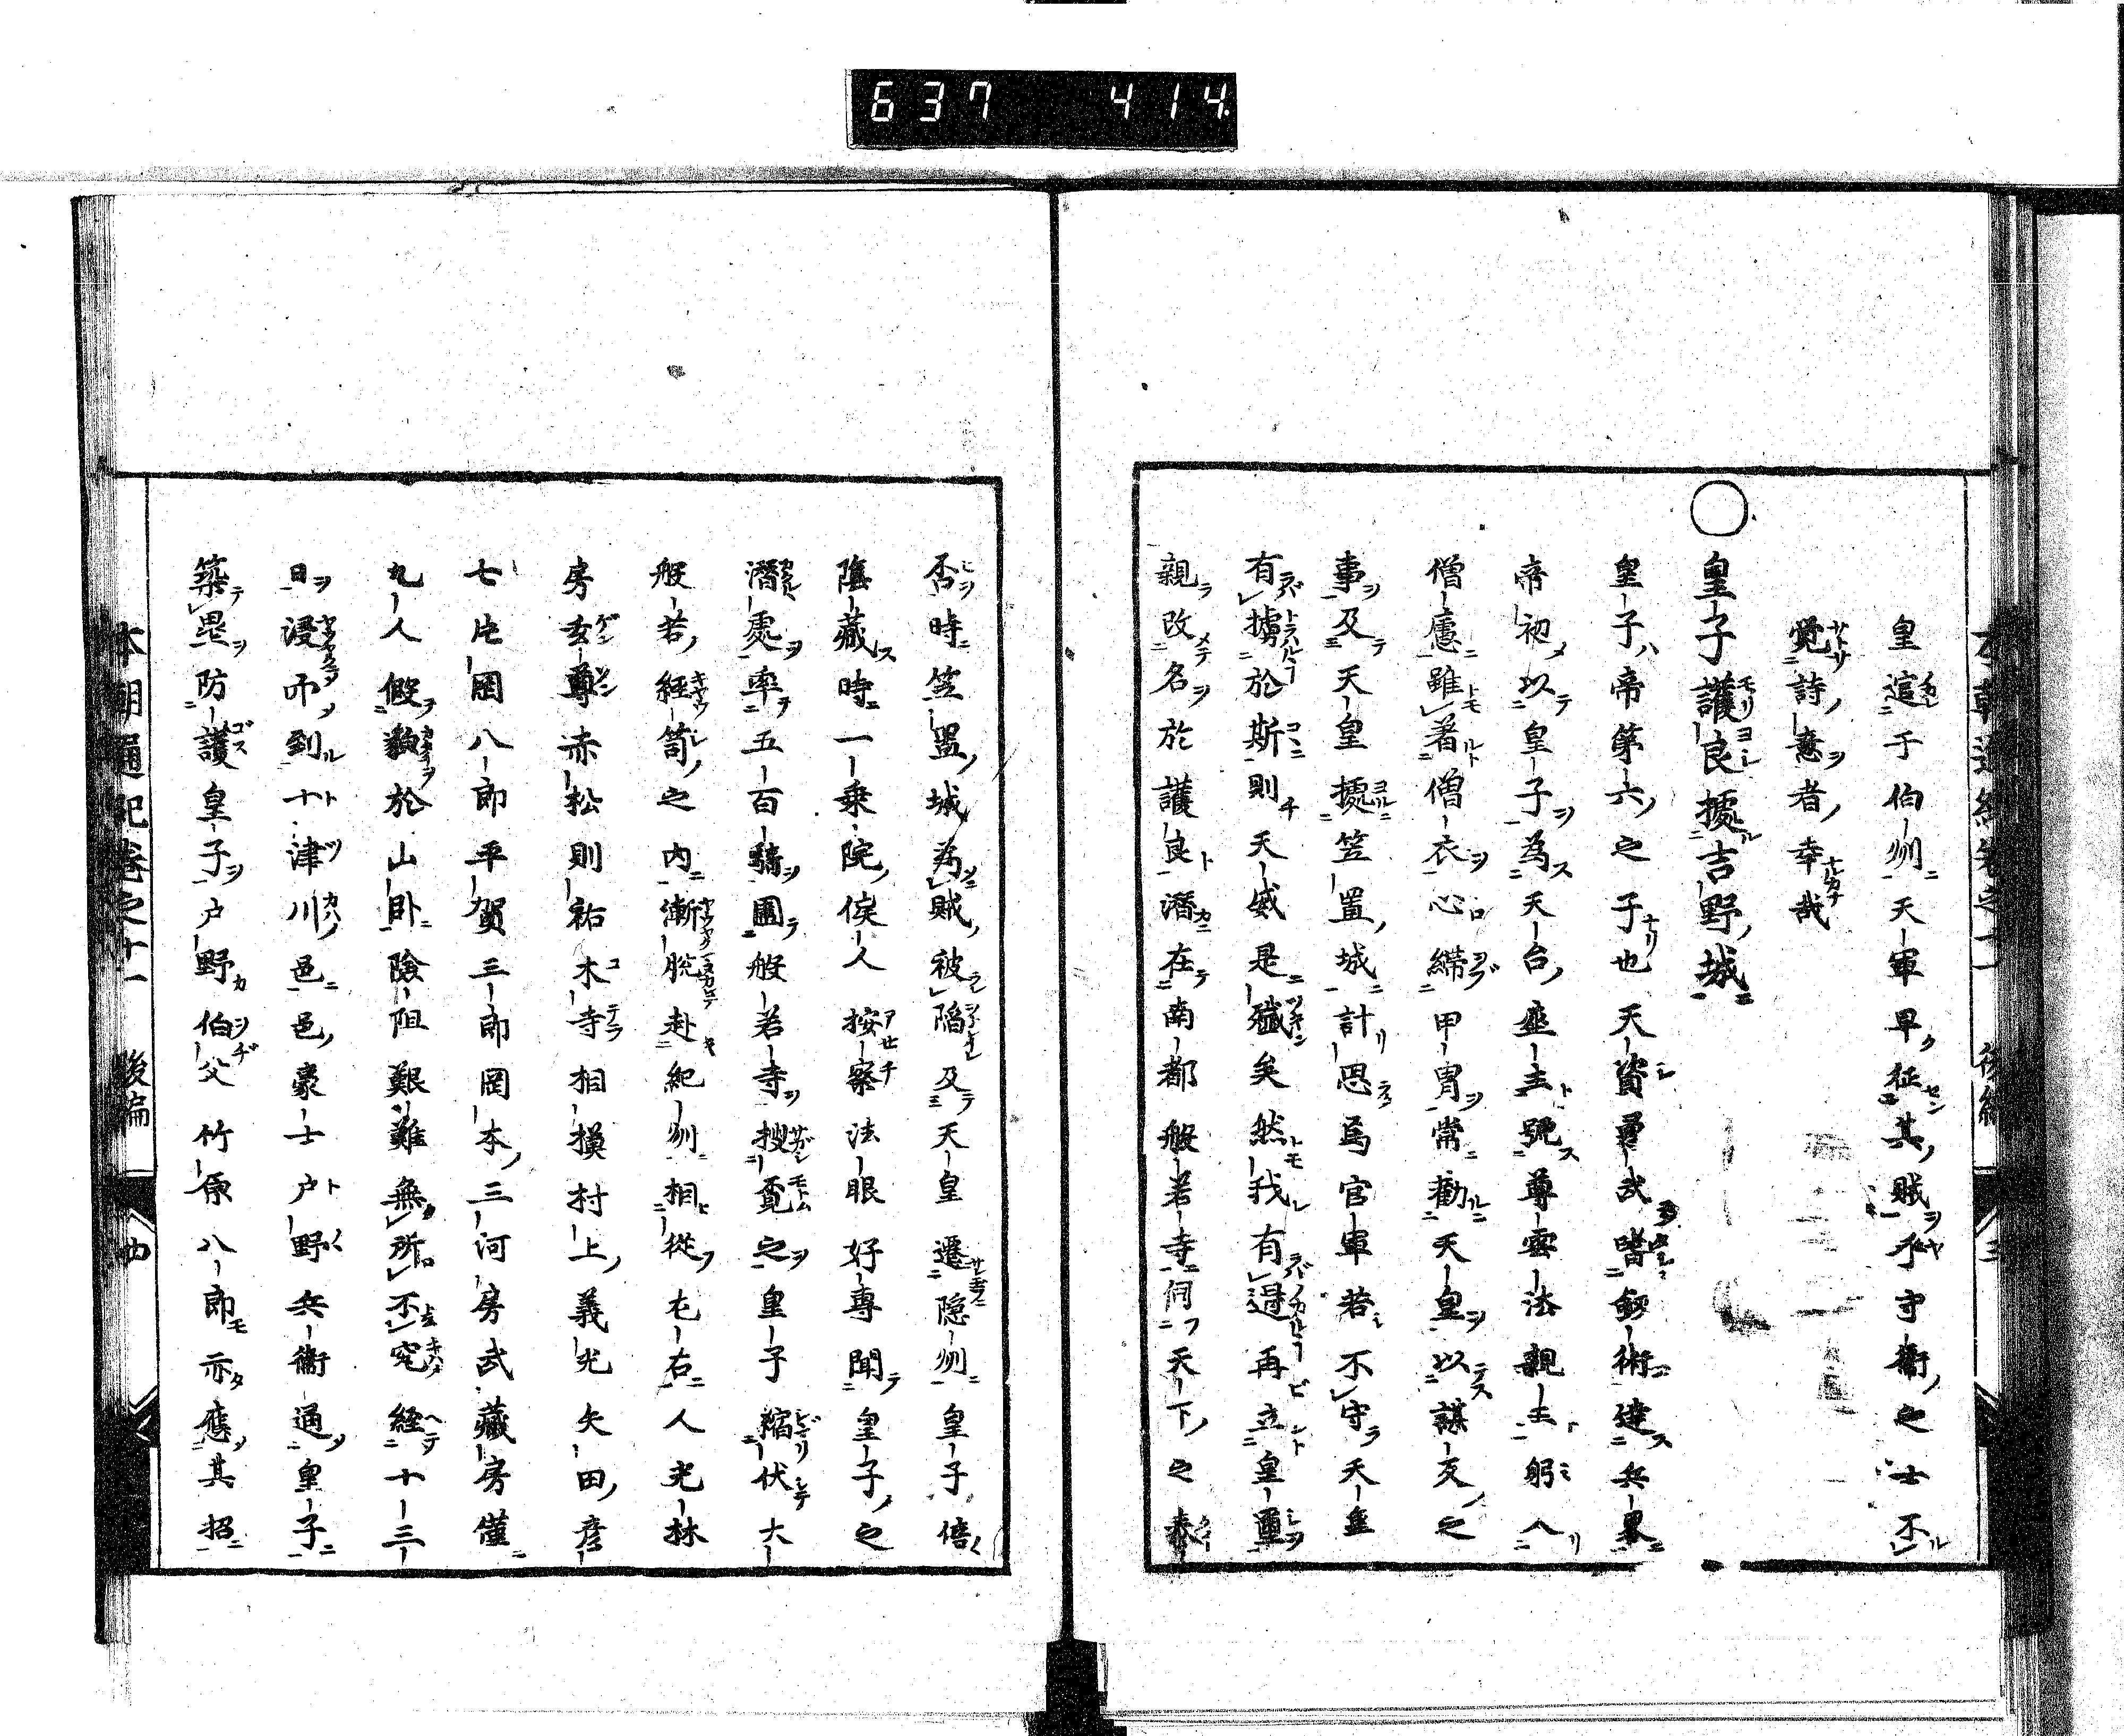 637 414
皇逭于伯州天軍早征其賊乎守衞之士不
覚詩意者幸哉
○皇子護良據吉野城
皇子帝第六之子也天資勇武嗜劔術達兵畧
帝初以皇子為天台座主號尊雲法親王躬入
僧慮雖著僧衣心締甲冑常勸天皇以謀反之
事及天皇據笠置城計思為官軍若不守天皇
有擄於斯則天威是殲矣然我有遁再立皇運
親改名於護良潛在南都般若寺伺天下之泰
否時笠置城為賊被陷及天皇遷隠州皇子倍
隱藏時一乗院候人按察法眼好專聞皇子之
潛處率五百騎圍般若寺搜覓之皇子縮伏大
般若経笥之内漸脱赴紀州相從左右人光林
房玄尊赤松則祐木寺相摸村上義光矢田彦
七片岡八郎平賀三郎岡本三河房武藏房僅
九人假裝於山臥險阻艱難無所不究経十三
日漫而到十津川邑邑豪士戸野兵衞通皇子
築壘防護皇子戸野伯父竹原八郎亦應其招
本朝通紀卷之十一 後編 四